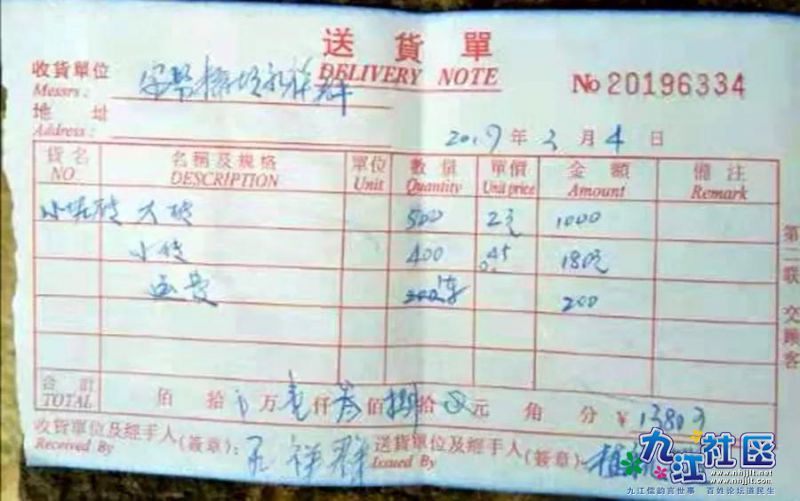 送貨單
收貨單位
DELIVERY NOTE
No 20196334
Messrs:
地址
Address:
2019年3月4日
貨名 名稱及規格 單位 數量 單價 金額 備注
NO. DESCRIPTION Unit Quantity Unit price Amount Remark
水泥砖 大砖 500 2元 1000
小砖 400 0.45 180元
200
合計 佰拾万壹仟叁佰捌拾元角分 ¥1380元
TOTAL
收貨單位及經手人(簽章): 王祥群 送貨單位及經手人(簽章):
Received By Issued By
第二联交顾客
九江社区
www.nhjjlt.com
九江儒韵言世事 百姓论坛道民生